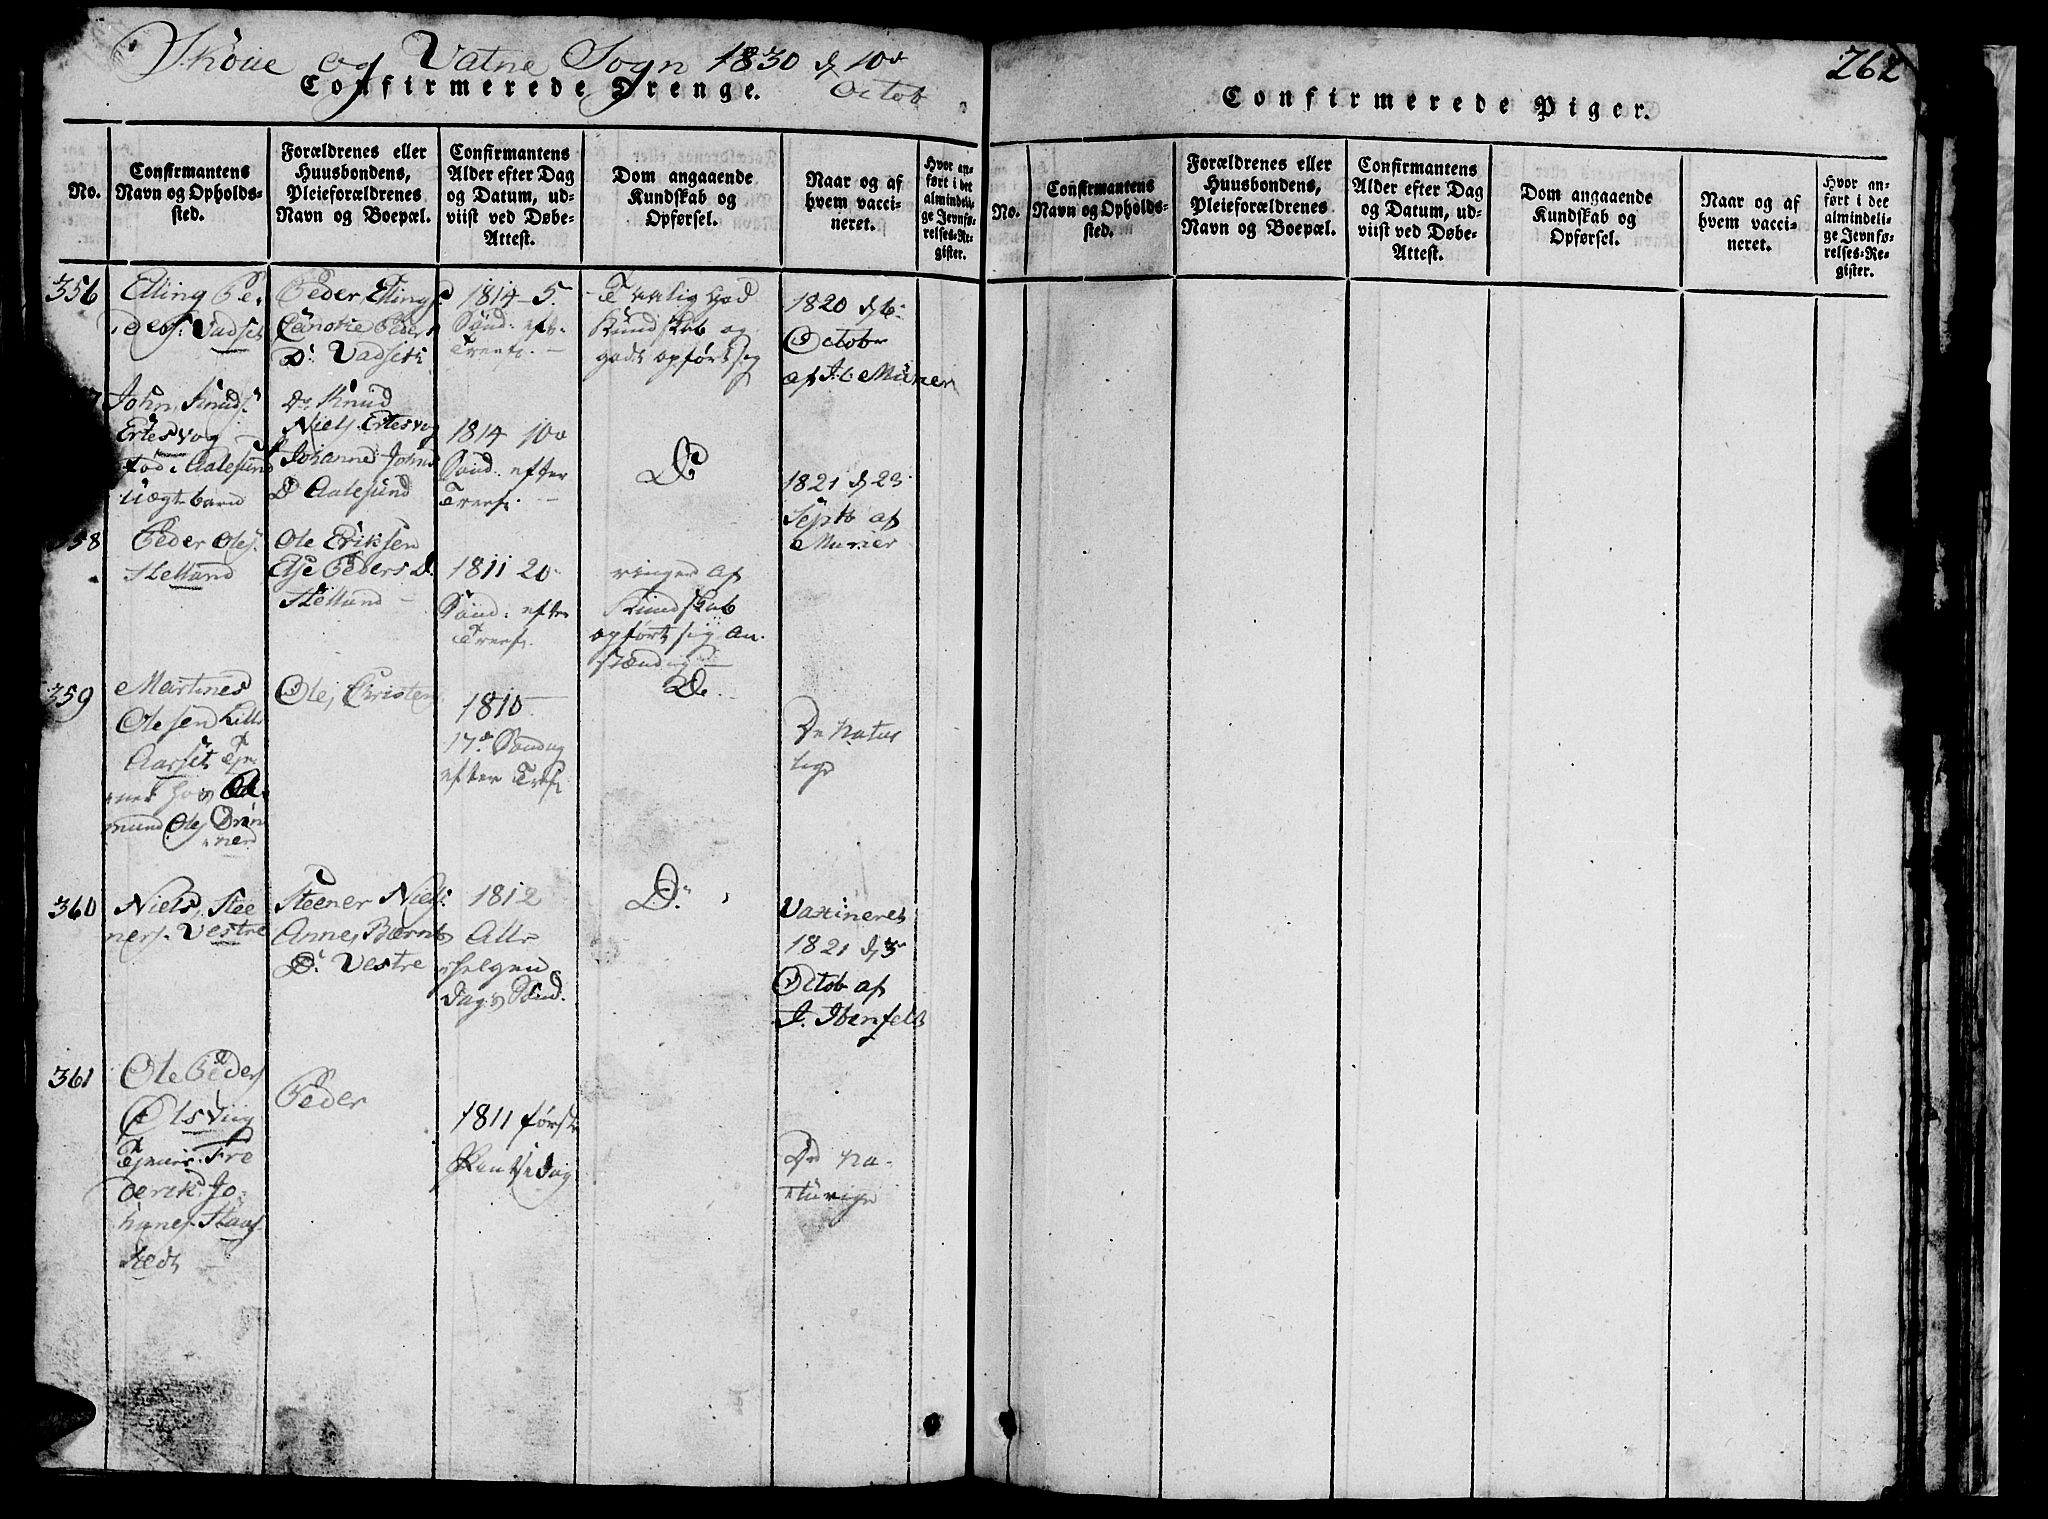 Skoue og Vatne Sogn 1830 d 10de
Octob
Confirmerede Drenge.
No.
Confirmantens
Navn og Opholds-
sted.
Forældrenes eller
Huusbondens,
Pleieforældrenes
Navn og Boepæl.
Confirmantens
Alder efter Dag
og Datum, ud-
viist ved Døbe-
Attest.
Dom angaaende
Kundskab og
Opførsel.
Naar og af
hvem vacci-
neret.
Hvor an-
ført i det
almindeli-
ge Jevnfø-
relses-Re-
gister.
356
Elling Pe-
ders: Vadset
Peder Ellings
Peders
D: Vadset
1814 - 5.
Sønd: eft:
Trenf. -
Taalig god
Kundskab og
godt opført sig
1820 d 6
October
af J. C. Murier
John, Knuds:
Ertesvog
fød i Aalesund
Uægte barn
Knud
Niels. Ertesvog
Johanne Johns
D Aalesund
1814 10de
Sønd. efter
Trenf. -
Do
1821 d 23
Septb af
Murier
58
Peder Oles:
Stellund
Ole Eriksen
Else Peders D.
Stellund -
1811 20
Sønd: efter
Trenf.
ringe af
Kundskab
opført sig an-
stændig
359
Martines
Olesen Lille
Aarset Tje-
net hos Aa-
mund Oles
Ole, Christen
1810
17de Søndag
efter Trenf
Do
De Natur
lige
360
Niels, Stee
ners. Vestre
Steener Niels:
Anne, Bernts
D: Vestre
1812
Alle
helgen
dags Sønd.
Do
Vaxineret
1821 d 3
Octob af
J. Ibenfeldt
361
Ole Peders
Olsviig
Tjener Fre
derik Jo-
hanes. Staaf
stedt -
Peder
1811 første
Pentsedag
De na-
turige
262
Confirmerede Piger.
No.
Confirmantens
Navn og Opholds-
sted.
Forældrenes eller
Huusbondens,
Pleieforældrenes
Navn og Boepæl.
Confirmantens
Alder efter Dag
og Datum, ud-
viist ved Døbe-
Attest.
Dom angaaende
Kundskab og
Opførsel.
Naar og af
hvem vacci-
neret.
Hvor an-
ført i det
almindeli-
ge Jevnfø-
relses-Re-
gister.